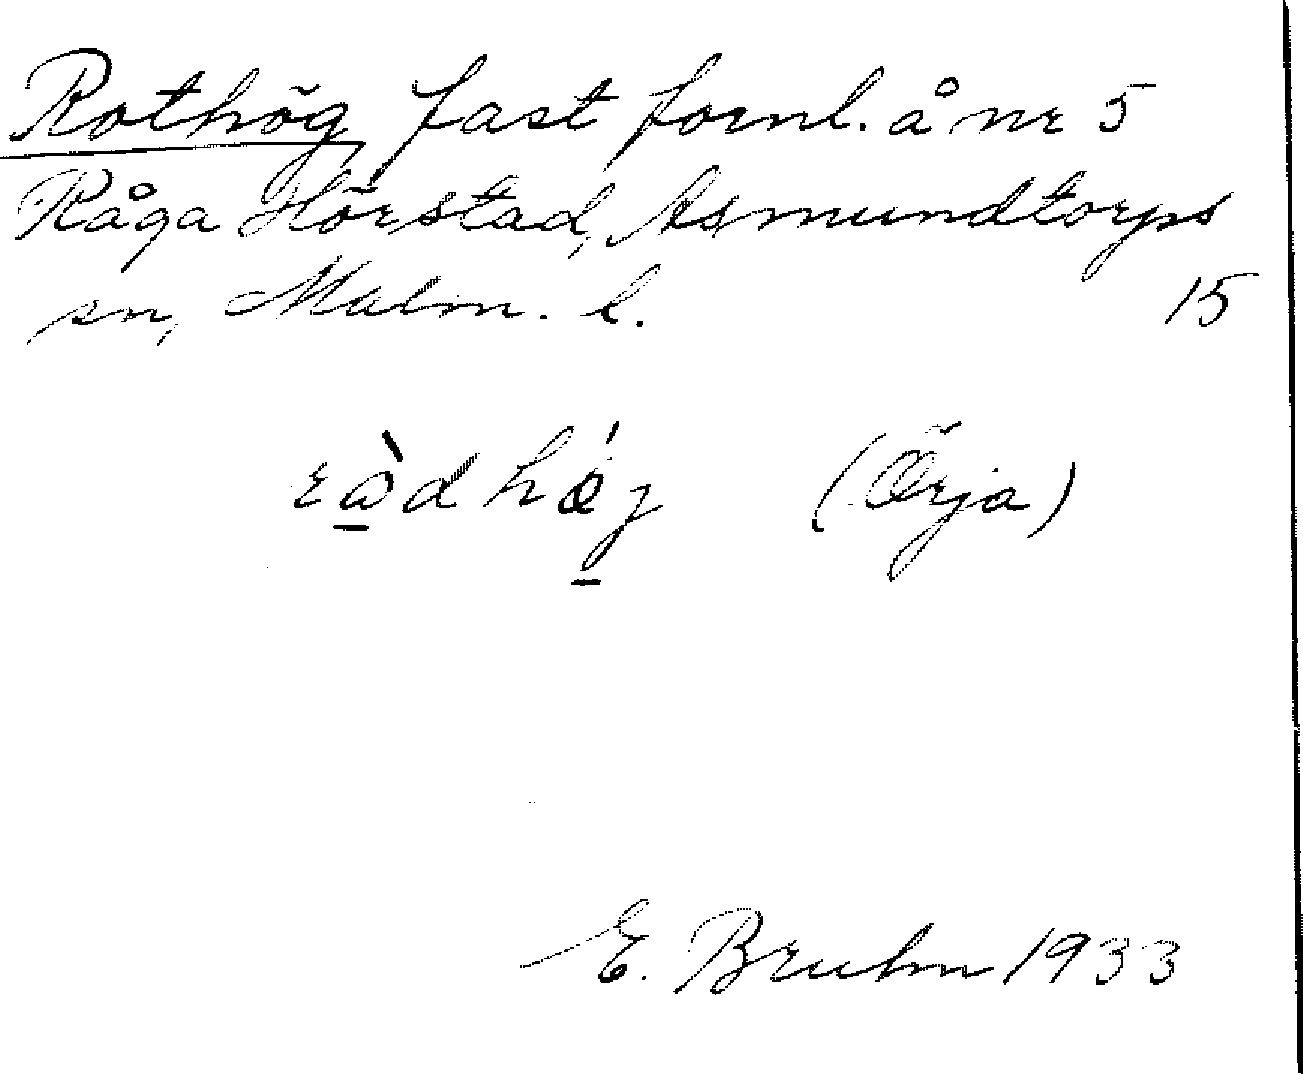 Rothög fast fornl. å nr 5
Råga Hörstad, Asmundtorps
sn, Malm. l. 15
ràdhǿj (Örja)
E. Bruhn 1933